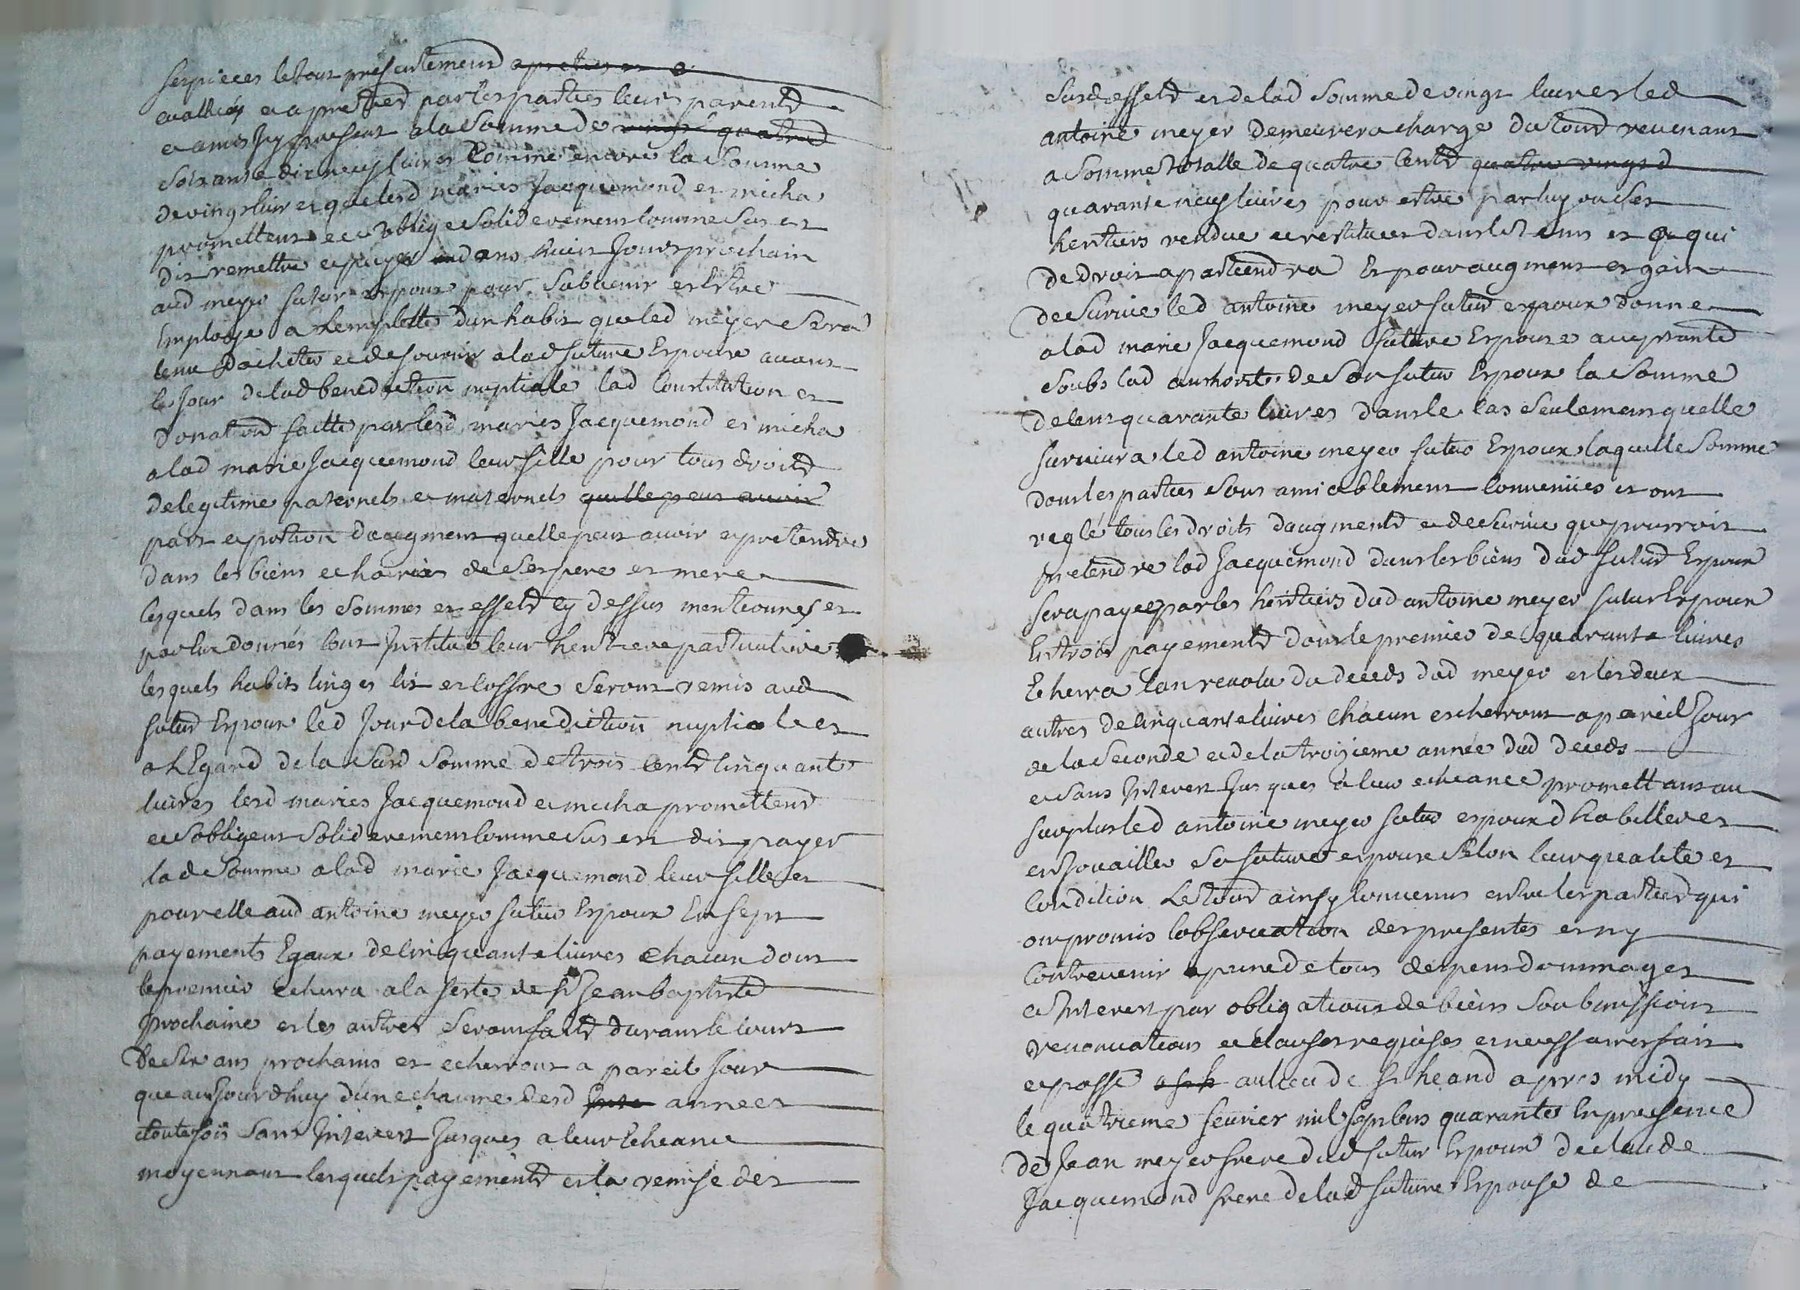 serpieces letout presentement
evallués et apretiés par les parties leurs parents
et amis Icy presents a la somme de vingt quatre
soixante dix neuf livres Comme encore la somme
de vingt livres que lesd mariés Jacquemond et micha
promettent et sobligent solidairement comme sus est
dit remettre et payer dans huit Jours prochain
aud meyer futur Expoux pour subvenir et Estre
Employé a Lemplette dun habit que led meyer sera
tenu dacheter et de fournir a lad future Expouse avant
le Jour de lad benediction nuptiale lad Constitution et
donation faitte par lesd mariés Jacquemond et micha
a lad marie Jacquemond leur fille pour tous droits
de legitime paternels et maternels quelle peut avoir
part et portion daugment quelle peut avoir et pretendre
dans les biens et hoiries de ses pere et mere
lesquels dans les sommes et effets cy dessus mentionnés et
par Eux donnés lont Institué leur heritiere particuliere
lesquels habits linges lit et coffre seront remis aud
futur Expoux led Jour de la benediction nuptiale et
a lEgard de la susd somme de trois cents cinquante
livres lesd mariés Jacquemond et micha promettent
et sobligent solidairement comme sus est dit payer
lade somme a lad marie Jacquemond leur fille et
pour elle aud antoine meyer futur Expoux En sept
payements Egaux de cinquante livres chacun dont
le premier echerra a la feste de st Jean baptiste
prochaine et les autres seront faits durant le cours
de six ans prochains et echerront a pareil Jour
que aujourdhuy dune chacune desd années
toutefois sans Interest Jusques a leur Echeance
moyennant lesquels payements et la remise des
susd effets et de lad somme de vingt livres led
antoine meyer demeurera chargé du tout revenant
a somme totalle de quatre cents quatre vingt
quarante neuf livres pour estre par luy ou ses
heritiers rendue et restituee dans les tems et a qui
de droit apartiendra Et pour augment et gain
de survie led antoine meyer futur expoux donne
a lad marie Jacquemond future Expouse acceptante
soubs lad authorité de son futur Expoux la somme
de cent quarante livres dans le cas seulement quelle
survivra led antoine meyer futur Expoux laquelle somme
dont les parties sont amiablement convenües et ont
reglé tous les droits daugments et de survie que pourroit
pretendre lad Jacquemond dans les biens dud futur Expoux
sera payee par les heritiers dud antoine meyer futur Expoux
En trois payements dont le premier de quarante livres
Echerra lan revolu du deceds dud meyer et les deux
autres de cinquante livres chacun escherront a pareil Jour
de la seconde et de la troisieme année dud deceds
et sans Interest Jusques a leur echeance promettant au
surplus led antoine meyer futur expoux dhabiller et
enjouailler sa future expouse selon leur qualité et
Condition Le tout ainsy convenu entre les parties qui
ont promis lobservation des presentes et ny
Contrevenir a peine de tous despens dommages
et Interest par obligations de biens soubmissions
renonciations et clauses requises et necessaires fait
et passé au lieu de st heand apres midy
le quatrieme fevrier mil sept cens quarante En presence
de Jean meyer frere dud futur Expoux de claude
Jacquemond frere de lad future Expouse de